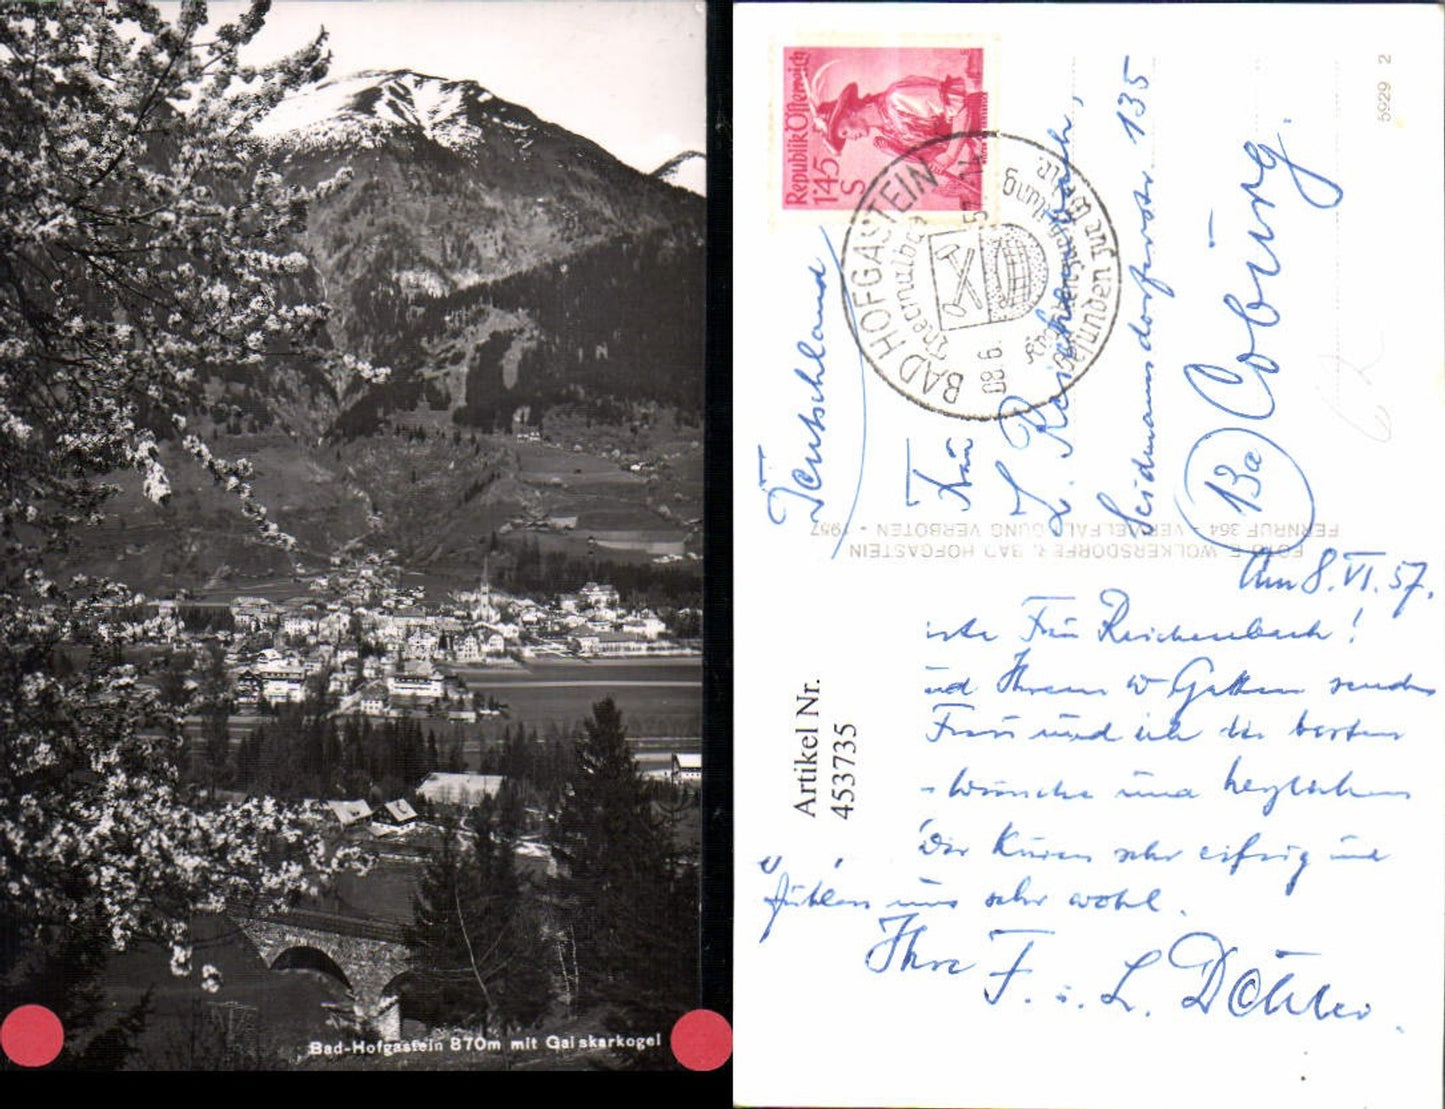 Bad-Hofgastein 870m mit Gaiskarkogel
Republik Österreich
1'45
S
BAD HOFGASTEIN
Thermalbad
08.6.57
5929 2
Deutschland
Frau
L. Reichenbach,
Seidmannsdorferstr. 135
13a Coburg.
FOTO F. WOLKERSDORFER, BAD HOFGASTEIN
FERNRUF 364 - VERVIELFÄLTIGUNG VERBOTEN - 1957
Artikel Nr.
453735
Am 8.VI.57.
Frau Reichenbach!
und Ihrem w Gatten senden
Frau und ich die besten
wünsche und herzlichen
Wir kuren sehr eifrig und
fühlen uns sehr wohl.
Ihre F. u. L.